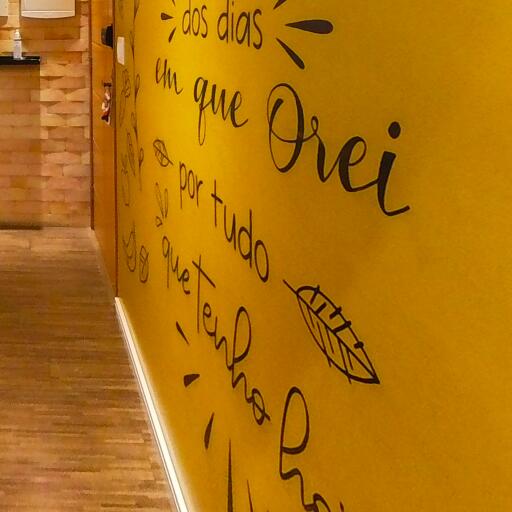 dos dias
em que Orei
por tudo
que tenho